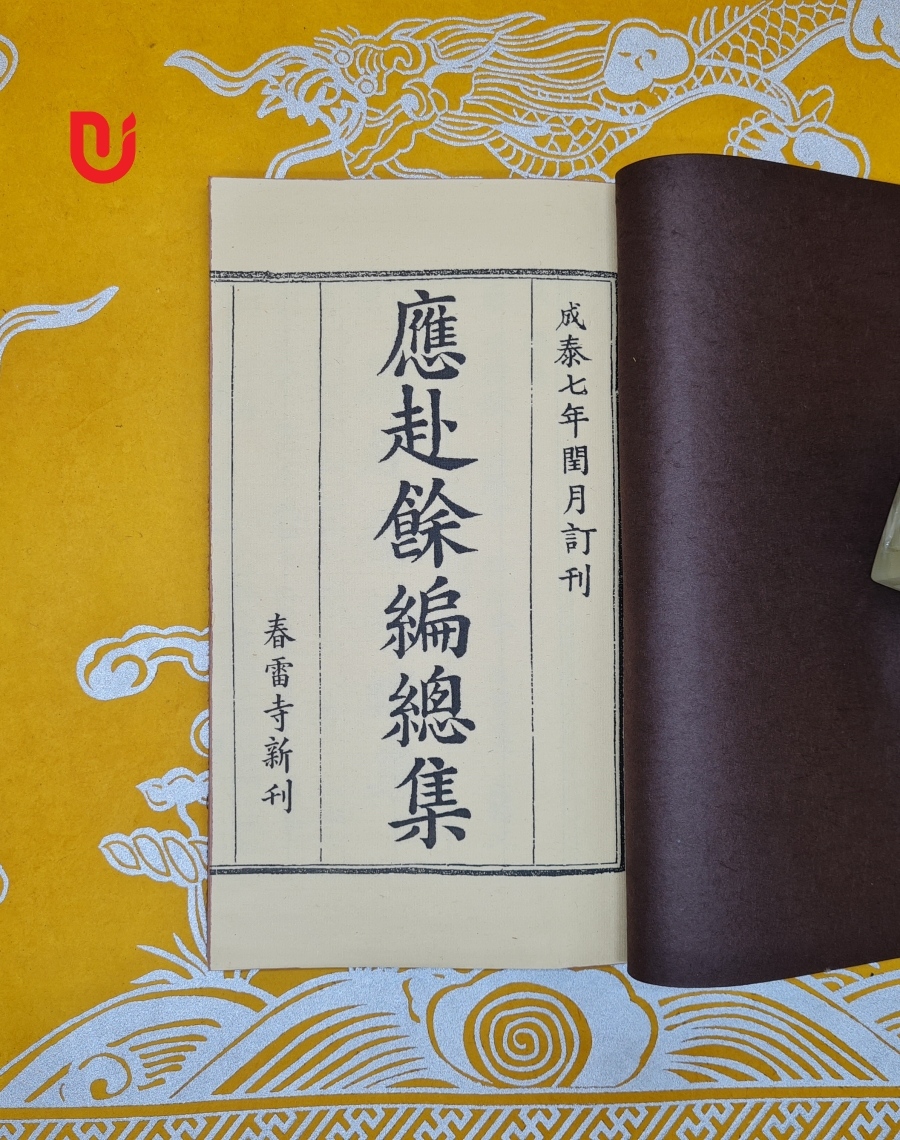 成泰七年閏月訂刊
應赴餘編總集
春雷寺新刊